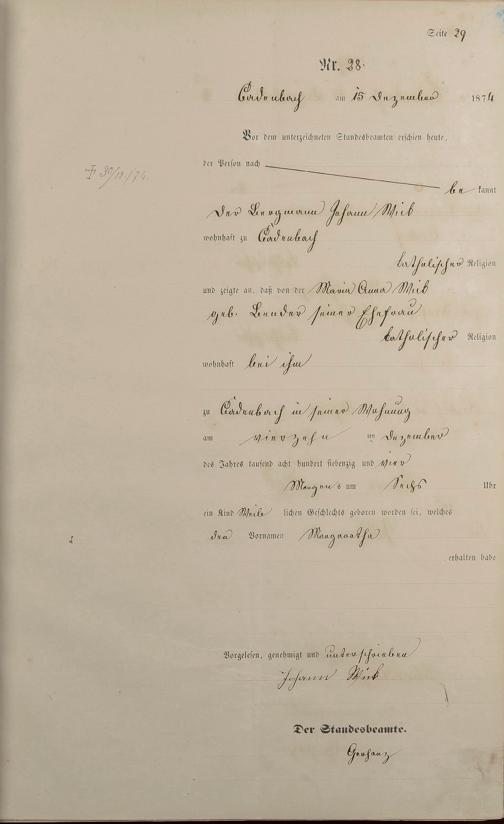 Seite 29
Nr. 28.
Cadenbach am 15 Dezember 1874
Vor dem unterzeichneten Standesbeamten erschien heute,
der Person nach
be kannt
Der Bergmann Johann Wirb
wohnhaft zu Cadenbach
katholischer Religion
und zeigte an, daß von der Maria Anna Wirb
geb. Bender seiner Ehefrau
katholischer Religion
wohnhaft bei ihm
zu Cadenbach in seiner Wohnung
am vierzehn ten Dezember
des Jahres tausend acht hundert siebenzig und vier
Morgens um Sechs Uhr
ein Kind Weib lichen Geschlechts geboren worden sei, welches
den Vornamen Margaretha
erhalten habe
Vorgelesen, genehmigt und unterschrieben
Johann Wirb
Der Standesbeamte.
Gerharz